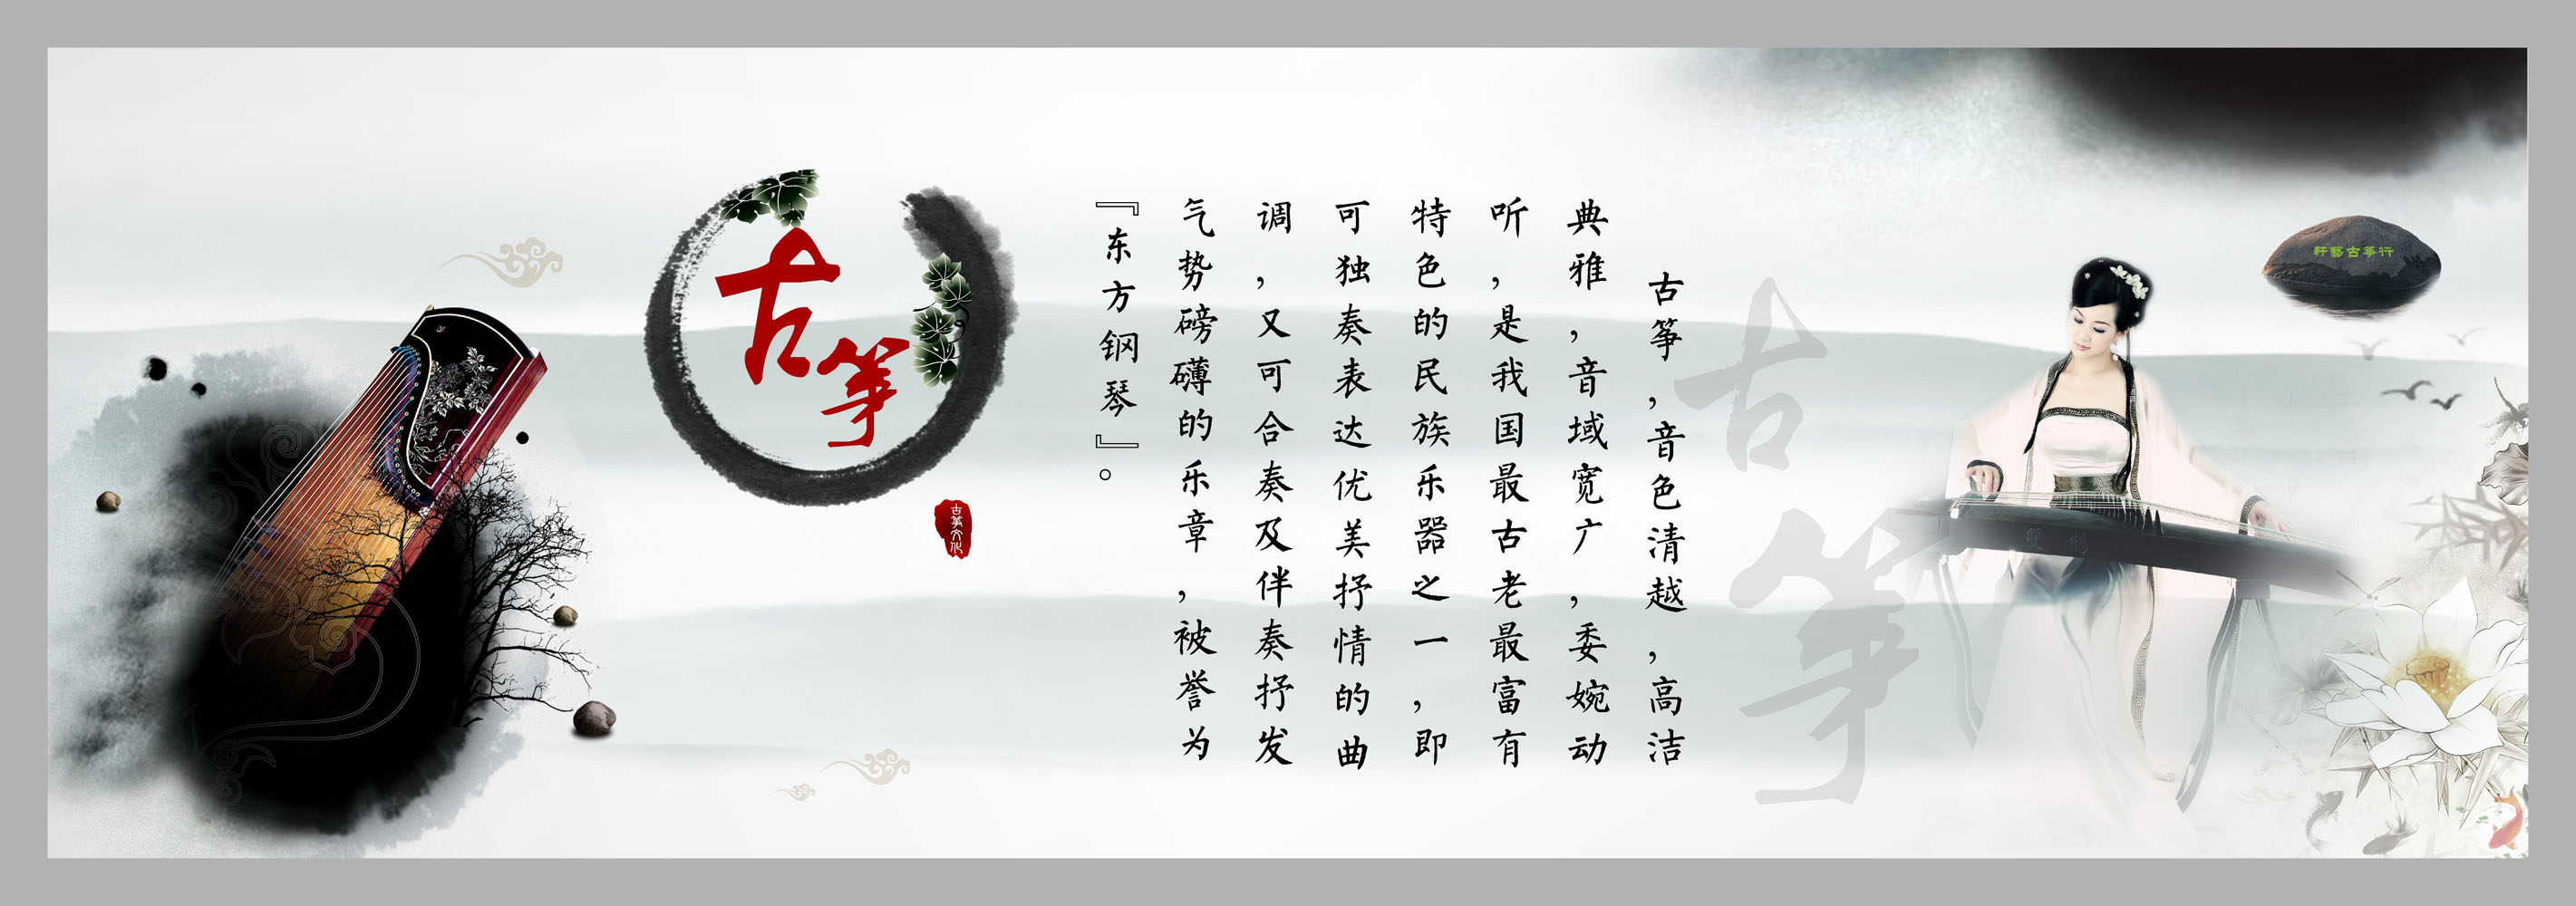 軒藝古筝行
古筝
古筝，音色清越，高洁
典雅，音域宽广，委婉动
听，是我国最古老最富有
特色的民族乐器之一，即
可独奏表达优美抒情的曲
调，又可合奏及伴奏抒发
气势磅礴的乐章，被誉为
『东方钢琴』。
古筝
古筝文化